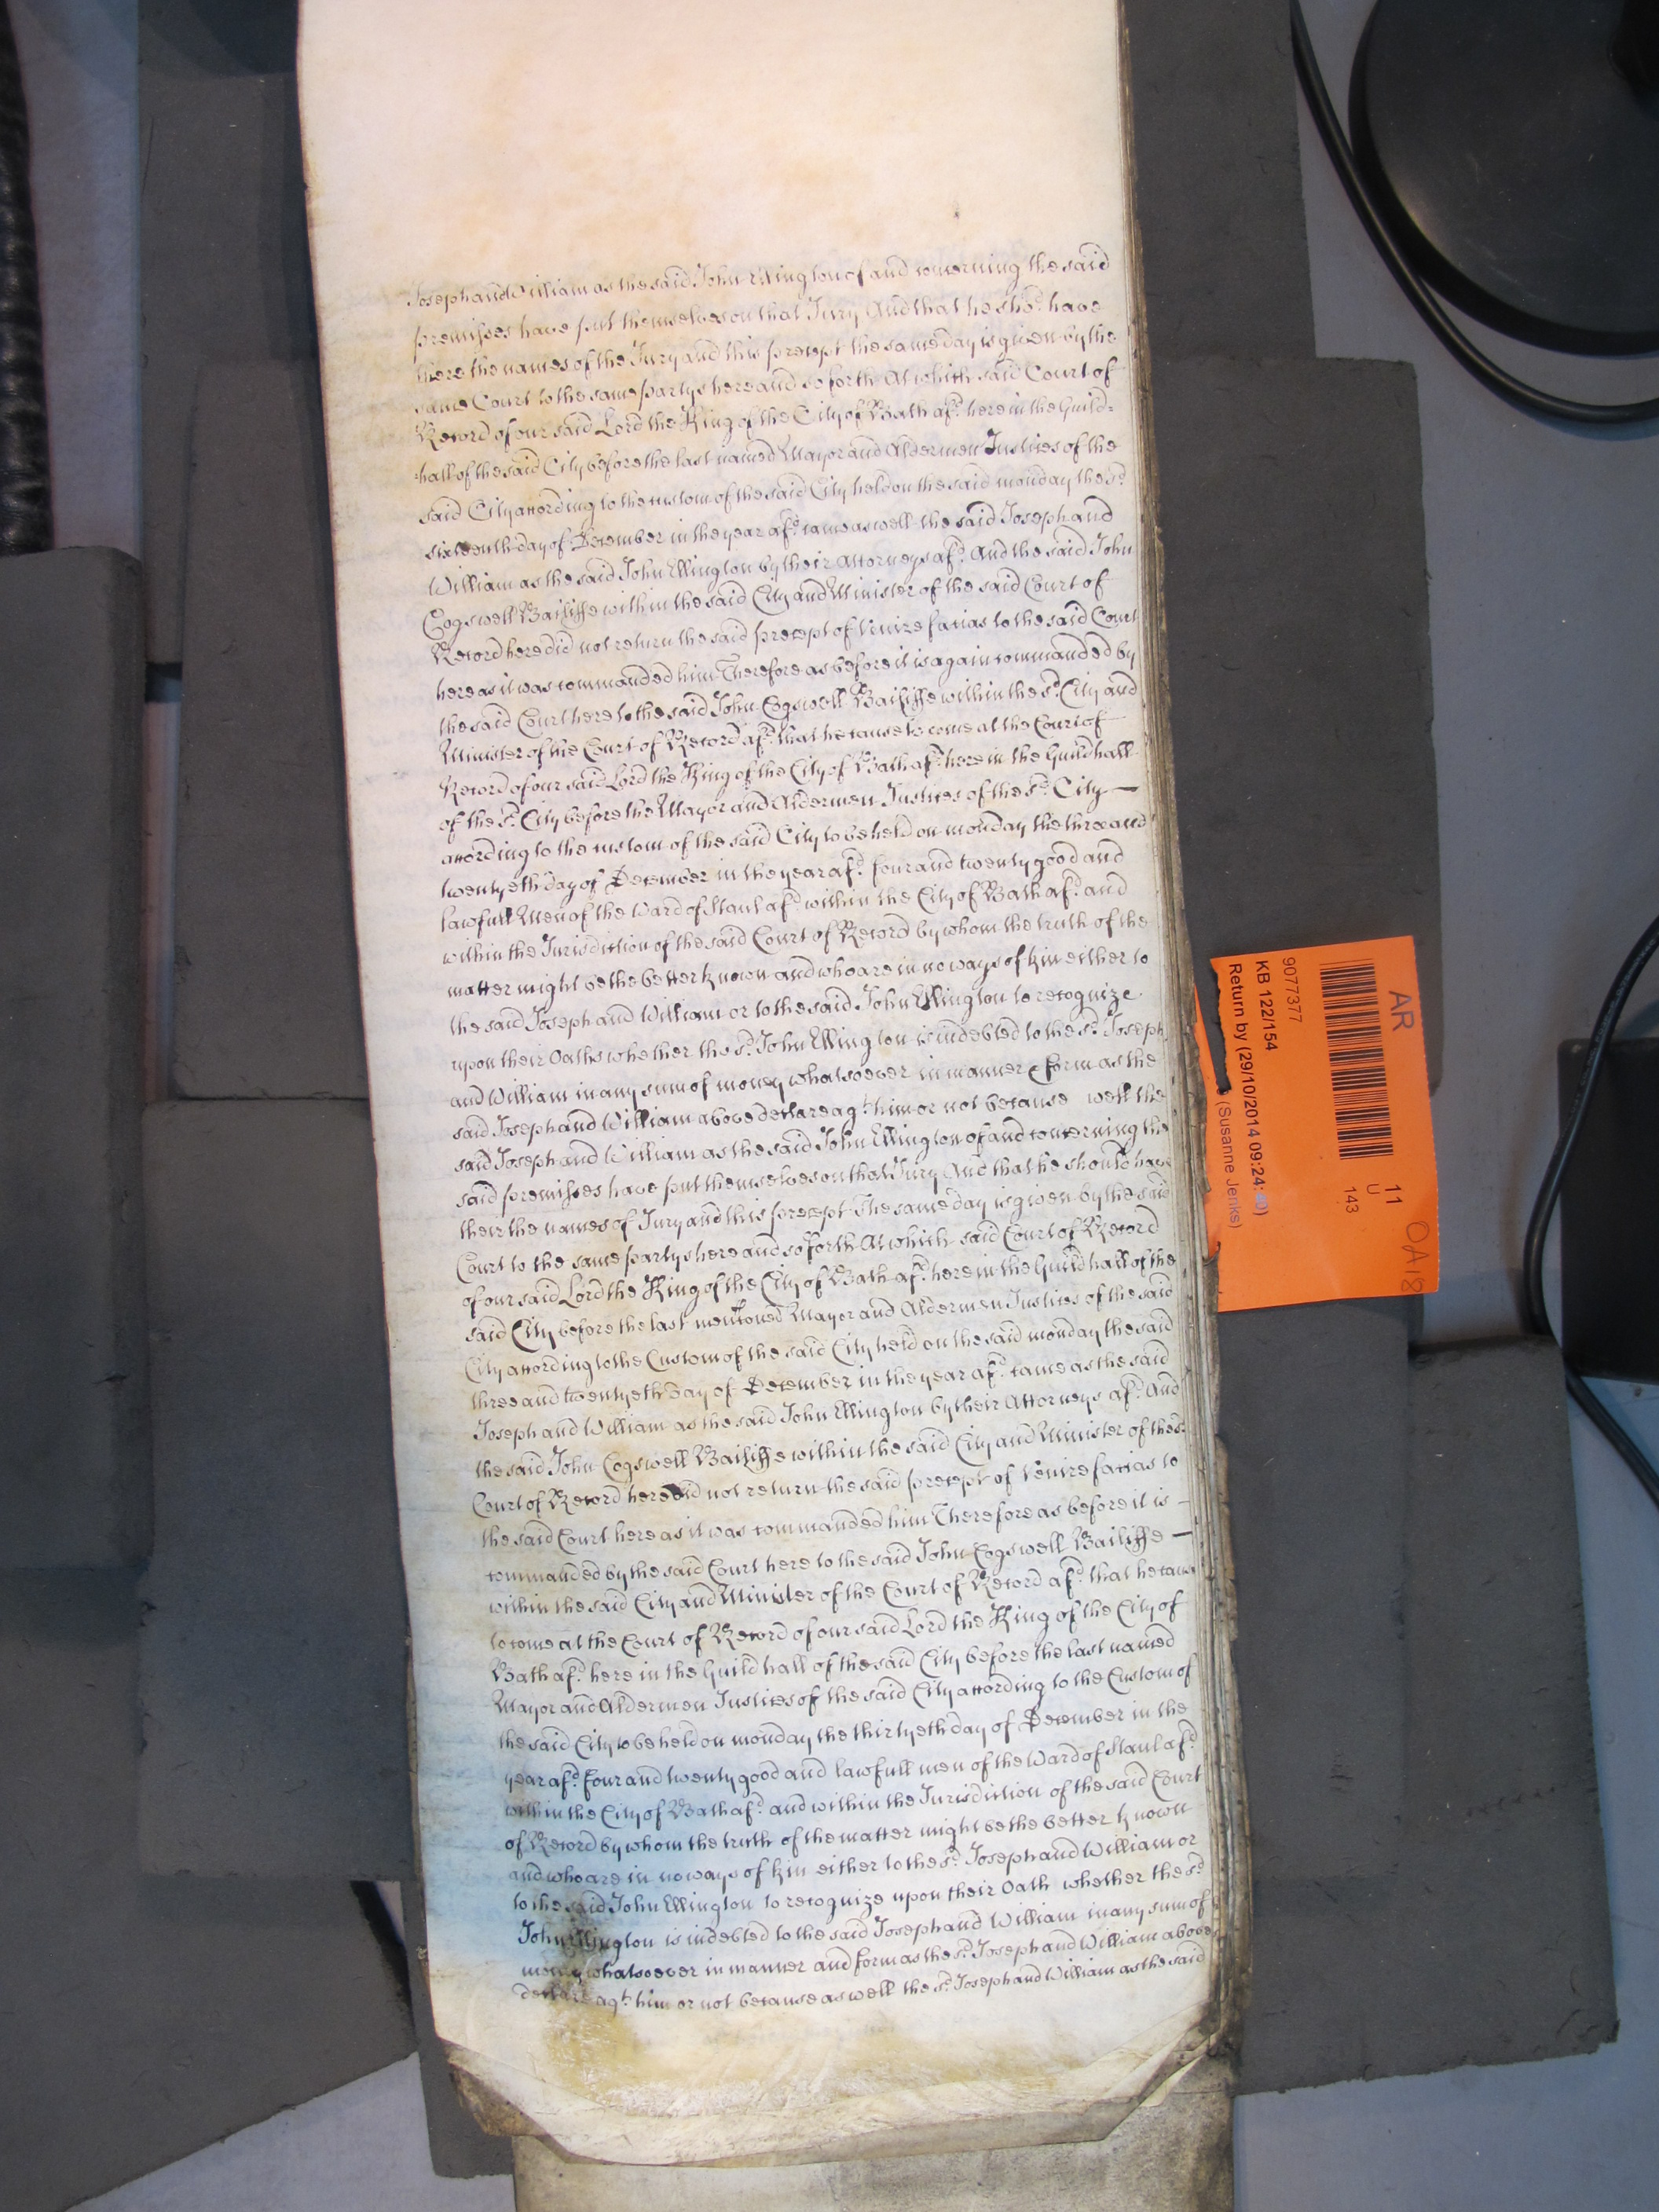 Joseph and William as the said John Ellington of and concerning the said
premisses have put themselves on that Jury And that he sho.d have
there the names of the Jury and this precept the same day is given by the
same Court to the same partys here and so forth At which said Court of
Record of our said Lord the King of the City of Bath af.d here in the Guild=
hall of the said City before the last named Mayor and Aldermen Justices of the
said City according to the custom of the said City held on the said monday the s.d
sixteenth day of December in the year af.d came as well the said Joseph and
William as the said John Ellington by their Attorneys af.d And the said John
Cogswell Bailiffe within the said City and Minister of the said Court of
Record here did not return the said precept of Venire facias to the said Court
here as it was commanded him Therefore as before it is again commanded by
the said Court here to the said John Cogswell Bailiffe within the s.d City and
Minister of the Court of Record af.d that he cause to come at the Court of
Record of our said Lord the King of the City of Bath af.d here in the Guildhall
of the s.d City before the Mayor and Aldermen Justices of the s.d City —
according to the custom of the said City to be held on monday the three and
twentyeth day of December in the year af.d four and twenty good and
lawfull Men of the Ward of Stant af.d within the City of Bath af.d and
within the Jurisdiction of the said Court of Record by whom the truth of the
matter might be the better known and who are in no ways of kin either to
the said Joseph and William or to the said John Ellington to recognize
upon their Oaths whether the s.d John Ellington is indebted to the s.d Joseph
and William in any sum of money whatsoever in manner & form as the
said Joseph and William above declare ag.t him or not because well the
said Joseph and William as the said John Ellington of and concerning the
said premisses have put themselves on that Jury And that he should have
their the names of Jury and this precept The same day is given by the said
Court to the same partys here and so forth At which said Court of Record
of our said Lord the King of the City of Bath af.d here in the Guildhall of the
said City before the last mentioned Mayor and Aldermen Justices of the said
City according to the Custom of the said City held on the said monday the said
three and twentyeth day of December in the year af.d came as the said
Joseph and William as the said John Ellington by their Attorneys af.d And
the said John Cogswell Bailiffe within the said City and Minister of the s.d
Court of Record here did not return the said precept of Venire facias to
the said Court here as it was commanded him Therefore as before it is —
commanded by the said Court here to the said John Cogswell Bailiffe —
within the said City and Minister of the Court of Record af.d that he cause
to come at the Court of Record of our said Lord the King of the City of
Bath af.d here in the Guild hall of the said City before the last named
Mayor and Aldermen Justices of the said City according to the Custom of
the said City to be held on monday the thirtyeth day of December in the
year af.d four and twenty good and lawfull men of the Ward of Stant af.d
within the City of Bath af.d and within the Jurisdiction of the said Court
of Record by whom the truth of the matter might be the better known
and who are in no ways of kin either to the s.d Joseph and William or
to the said John Ellington to recognize upon their Oath whether the s.d
John Ellington is indebted to the said Joseph and William in any sum of
money whatsoever in manner and form as the s.d Joseph and William above
declare ag.t him or not because as well the s.d Joseph and William as the said
AR
11
U
143
OA18
9077377
KB 122/154
Return by (29/10/2014 09:24:
(Susanne Jenks)